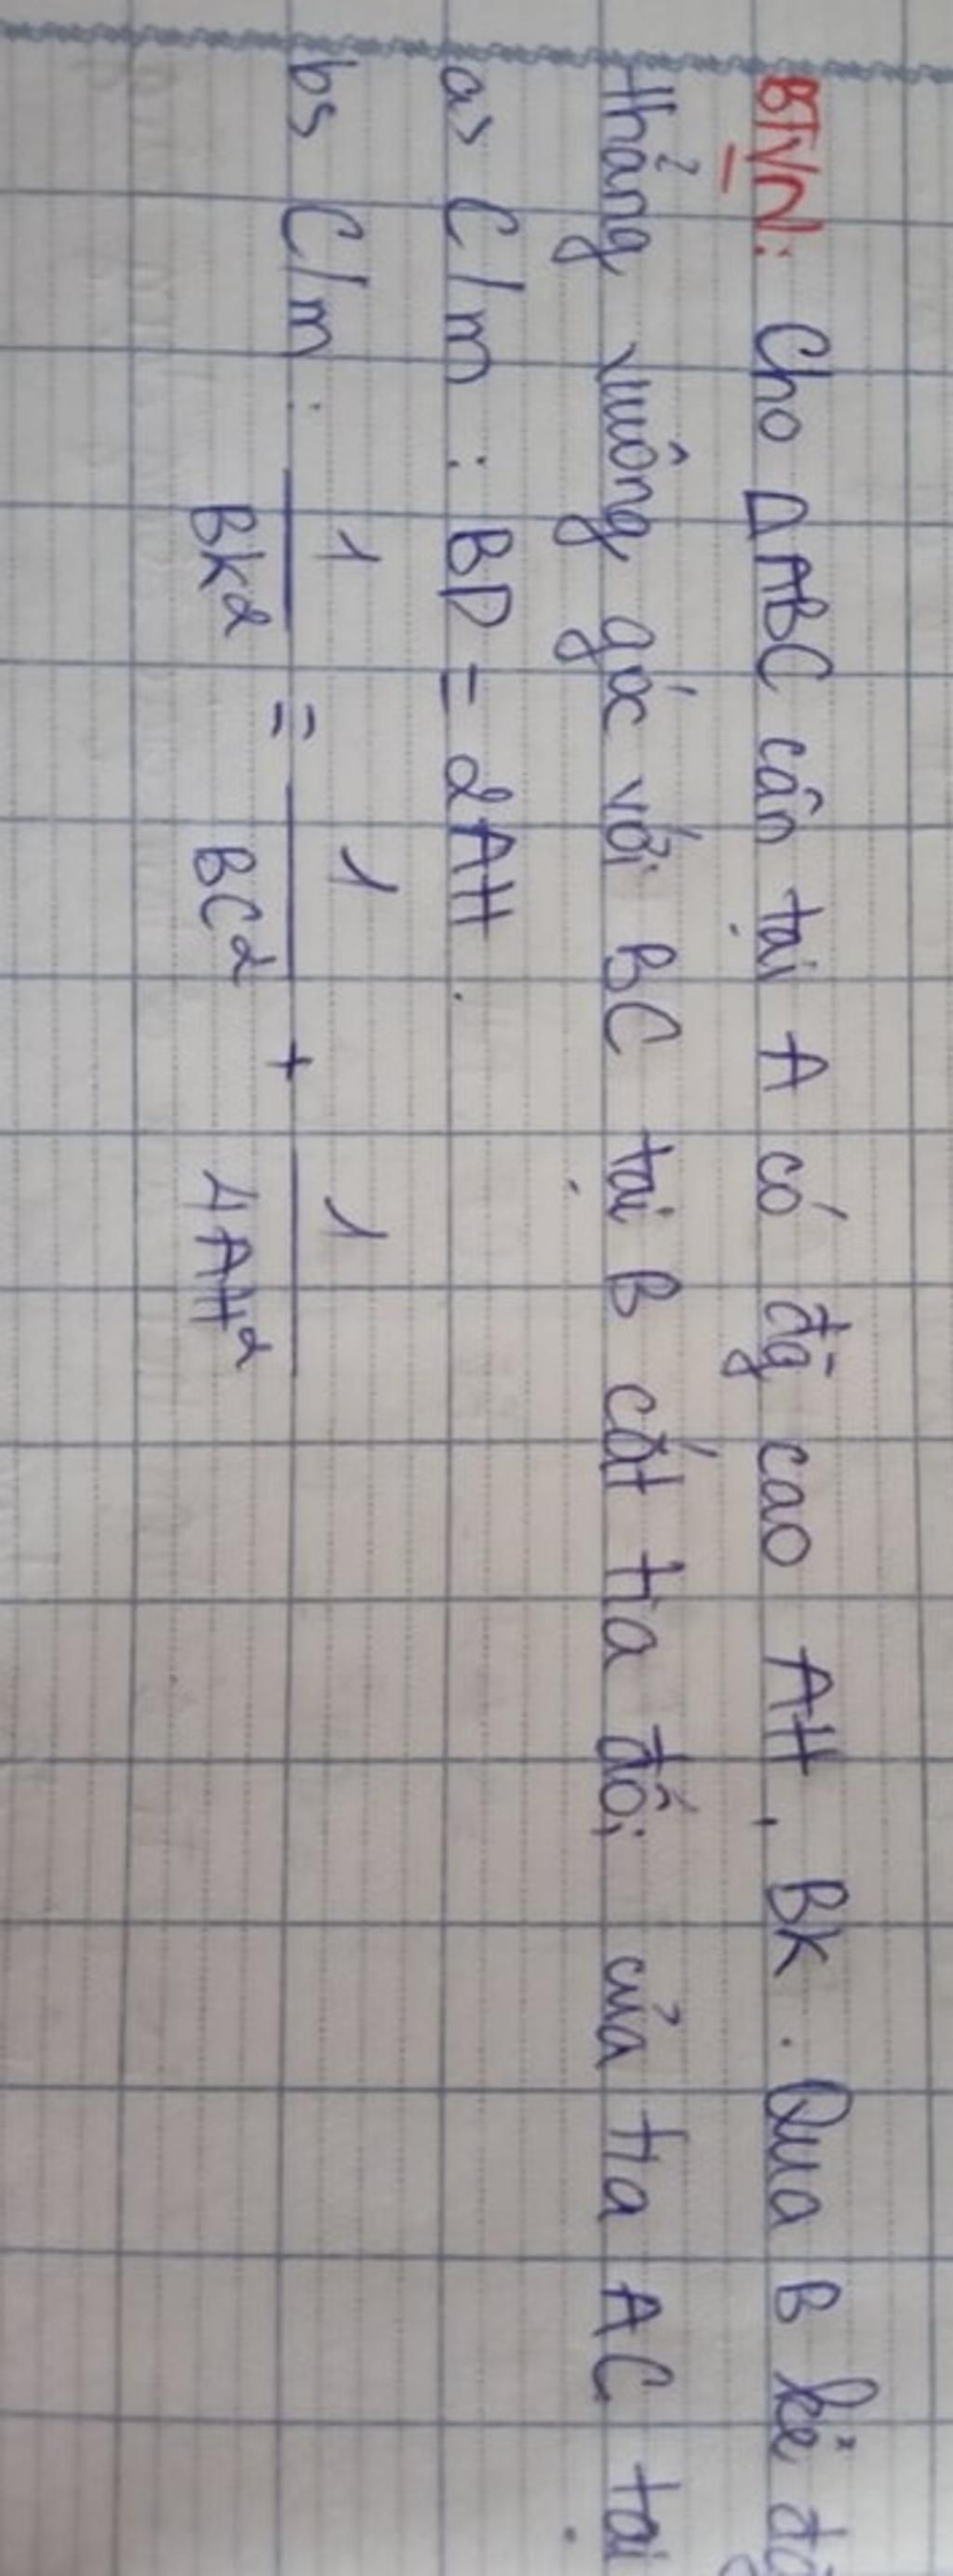 BTVN: Cho ΔABC cân tại A có đg cao AH, BK. Qua B kẻ
thẳng vuông góc với BC tại B cắt tia đối của tia AC tại
a> C/m : BD = 2AH.
b> C/m : 1/BK² = 1/BC² + 1/4AH²